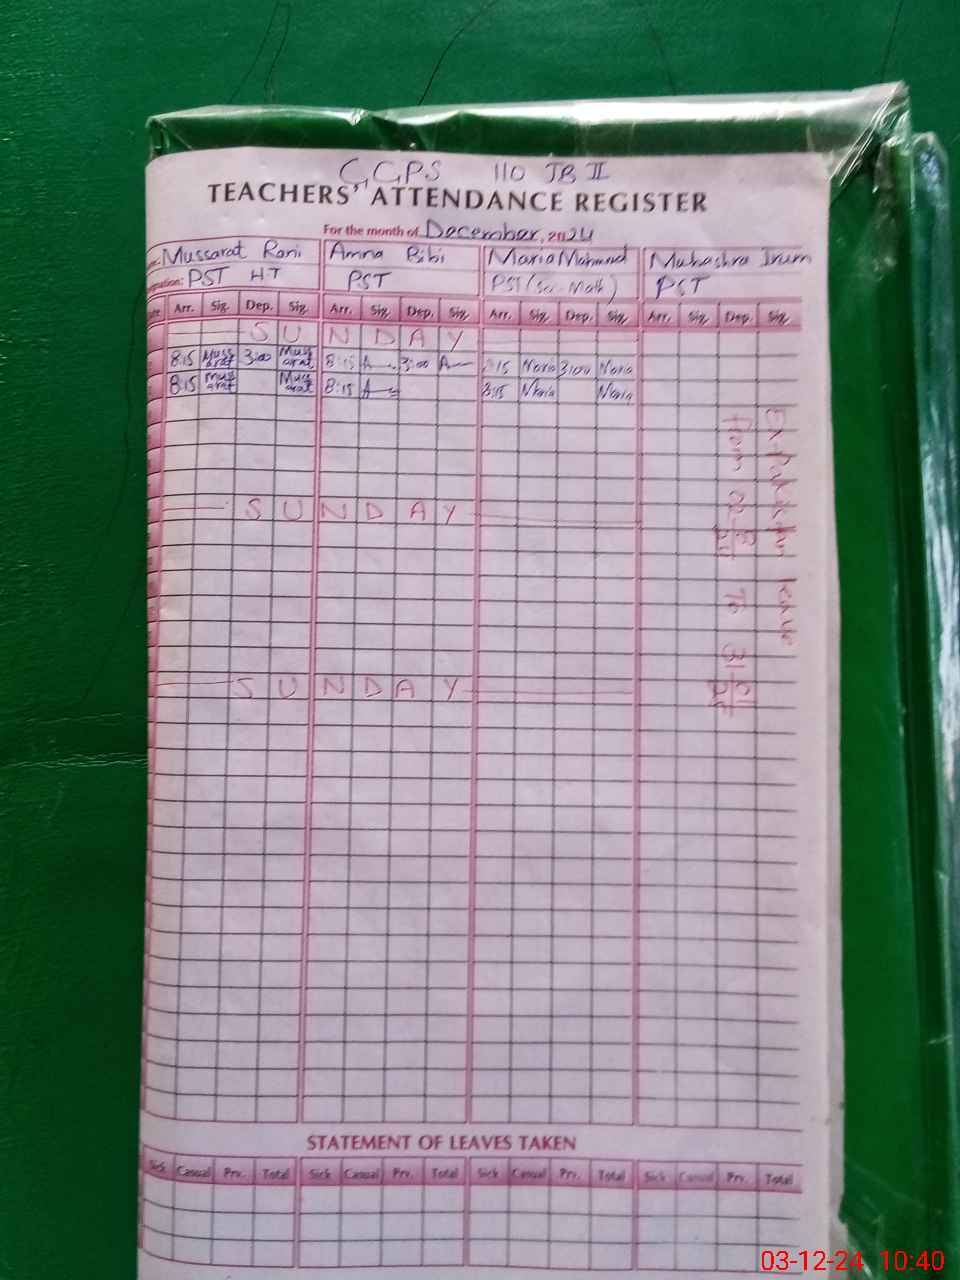 GGPS 110 JB II
TEACHERS' ATTENDANCE REGISTER
For the month of December, 2024
Mussarat Rani Amna Bibi Maria Mahmood Mubashra Irum
PST HT PST PST (Sci-Math) PST
Arr. Sig. Dep. Sig. Arr. Sig. Dep. Sig. Arr. Sig. Dep. Sig. Arr. Sig. Dep. Sig.
SUNDAY
8:15 Mussarat 3:00 Mussarat 8:15 A 3:00 A 8:15 Maria 3:00 Maria
8:15 Mussarat Mussarat 8:15 A 8:15 Maria Maria
Ex-Pakistan leave
from 02-12-24 To 31-01-25
SUNDAY
SUNDAY
STATEMENT OF LEAVES TAKEN
Sick Casual Prv. Total Sick Casual Prv. Total Sick Casual Prv. Total Sick Casual Prv. Total
03-12-24 10:40